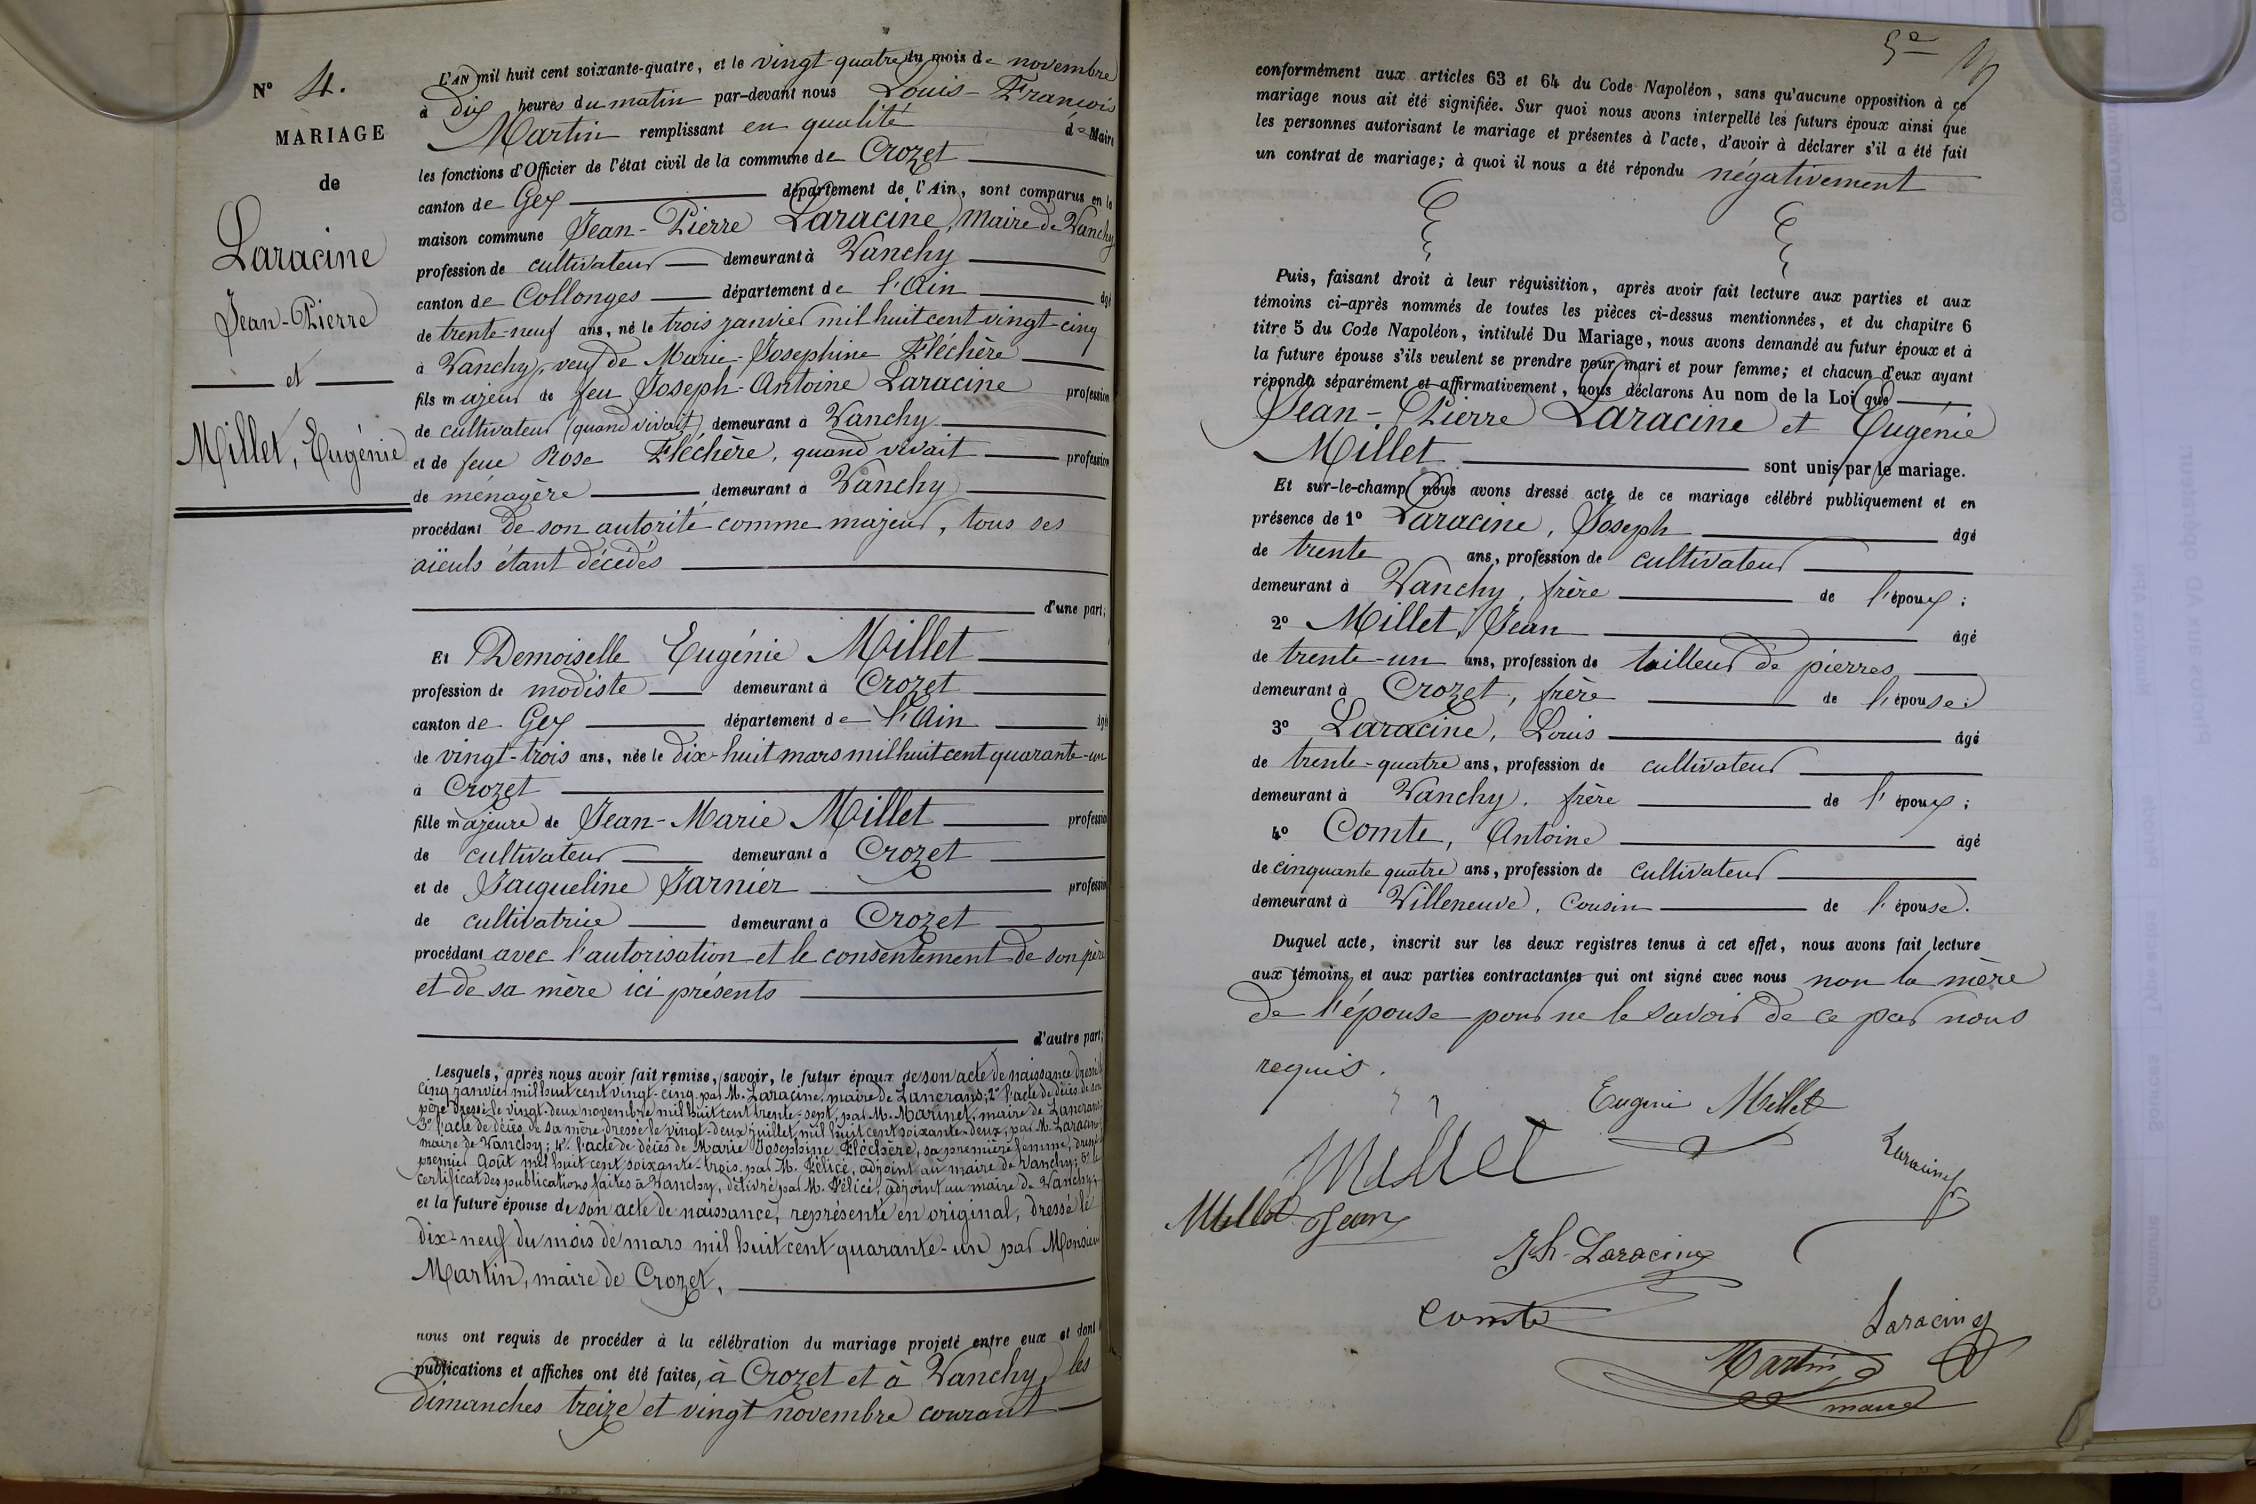 N° 4.
MARIAGE
de
Laracine
Jean-Pierre
et
Millet, Eugénie
L'AN mil huit cent soixante-quatre, et le vingt-quatre du mois de novembre
à dix heures du matin par-devant nous Louis-François
Martin remplissant en qualité de Maire
les fonctions d'Officier de l'état civil de la commune de Crozet
canton de Gex département de l'Ain, sont comparus en la
maison commune Jean-Pierre Laracine, Maire de Vanchy
profession de cultivateur demeurant à Vanchy
canton de Collonges département de l'Ain âgé
de trente-neuf ans, né le trois janvier mil huit cent vingt-cinq
à Vanchy, veuf de Marie-Josephine Fléchère
fils majeur de feu Joseph-Antoine Laracine profession
de cultivateur (quand vivait) demeurant à Vanchy
et de feue Rose Fléchère, quand vivait profession
de ménagère demeurant à Vanchy
procédant de son autorité comme majeur, tous ses
aïeuls étant décédés
d'une part;
Et Demoiselle Eugénie Millet
profession de modiste demeurant à Crozet
canton de Gex département de l'Ain âgé
de vingt-trois ans, née le dix-huit mars mil huit cent quarante-un
à Crozet
fille majeure de Jean-Marie Millet profession
de cultivateur demeurant à Crozet
et de Jacqueline Jarnier profession
de cultivatrice demeurant à Crozet
procédant avec l'autorisation et le consentement de son père
et de sa mère ici présents
d'autre part;
Lesquels, après nous avoir fait remise, savoir, le futur époux de son acte de naissance dressé le
cinq janvier mil huit cent vingt-cinq par M. Laracine, maire de Lancrans; 2° l'acte de décès de son
père dressé le vingt-deux novembre mil huit cent trente-sept, par M. Marinet, maire de Lancrans;
3° l'acte de décès de sa mère dressé le vingt-deux juillet mil huit cent soixante-deux, par M. Laracine
maire de Vanchy; 4° l'acte de décès de Marie Josephine Fléchère, sa première femme, dressé le
premier Août mil huit cent soixante-trois par M. Félicé, adjoint au maire de Vanchy; 5° le
certificat des publications faites à Vanchy, délivré par M. Félicé, adjoint au maire de Vanchy;
et la future épouse de son acte de naissance, représenté en original, dressé le
dix-neuf du mois de mars mil huit cent quarante-un par Monsieur
Martin, maire de Crozet,
nous ont requis de procéder à la célébration du mariage projeté entre eux et dont
publications et affiches ont été faites, à Crozet et à Vanchy, les
dimanches treize et vingt novembre courant
conformément aux articles 63 et 64 du Code Napoléon, sans qu'aucune opposition à ce
mariage nous ait été signifiée. Sur quoi nous avons interpellé les futurs époux ainsi que
les personnes autorisant le mariage et présentes à l'acte, d'avoir à déclarer s'il a été fait
un contrat de mariage; à quoi il nous a été répondu négativement
Puis, faisant droit à leur réquisition, après avoir fait lecture aux parties et aux
témoins ci-après nommés de toutes les pièces ci-dessus mentionnées, et du chapitre 6
titre 5 du Code Napoléon, intitulé Du Mariage, nous avons demandé au futur époux et à
la future épouse s'ils veulent se prendre pour mari et pour femme; et chacun d'eux ayant
répondu séparément et affirmativement, nous déclarons Au nom de la Loi que
Jean-Pierre Laracine et Eugénie
Millet sont unis par le mariage.
Et sur-le-champ nous avons dressé acte de ce mariage célébré publiquement et en
présence de 1° Laracine, Joseph âgé
de trente ans, profession de cultivateur
demeurant à Vanchy, frère de l'époux;
2° Millet, Jean âgé
de trente-un ans, profession de tailleur de pierres
demeurant à Crozet, frère de l'épouse;
3° Laracine, Louis âgé
de trente-quatre ans, profession de cultivateur
demeurant à Vanchy. frère de l'époux;
4° Comte, Antoine âgé
de cinquante quatre ans, profession de cultivateur
demeurant à Villeneuve, cousin de l'épouse.
Duquel acte, inscrit sur les deux registres tenus à cet effet, nous avons fait lecture
aux témoins et aux parties contractantes qui ont signé avec nous non la mère
de l'épouse pour ne le savoir de ce par nous
requis.
Eugenie Millet
Millet
Laracine
Millet Jean
Jh Laracine
Comte
Laracine
Martin
maire